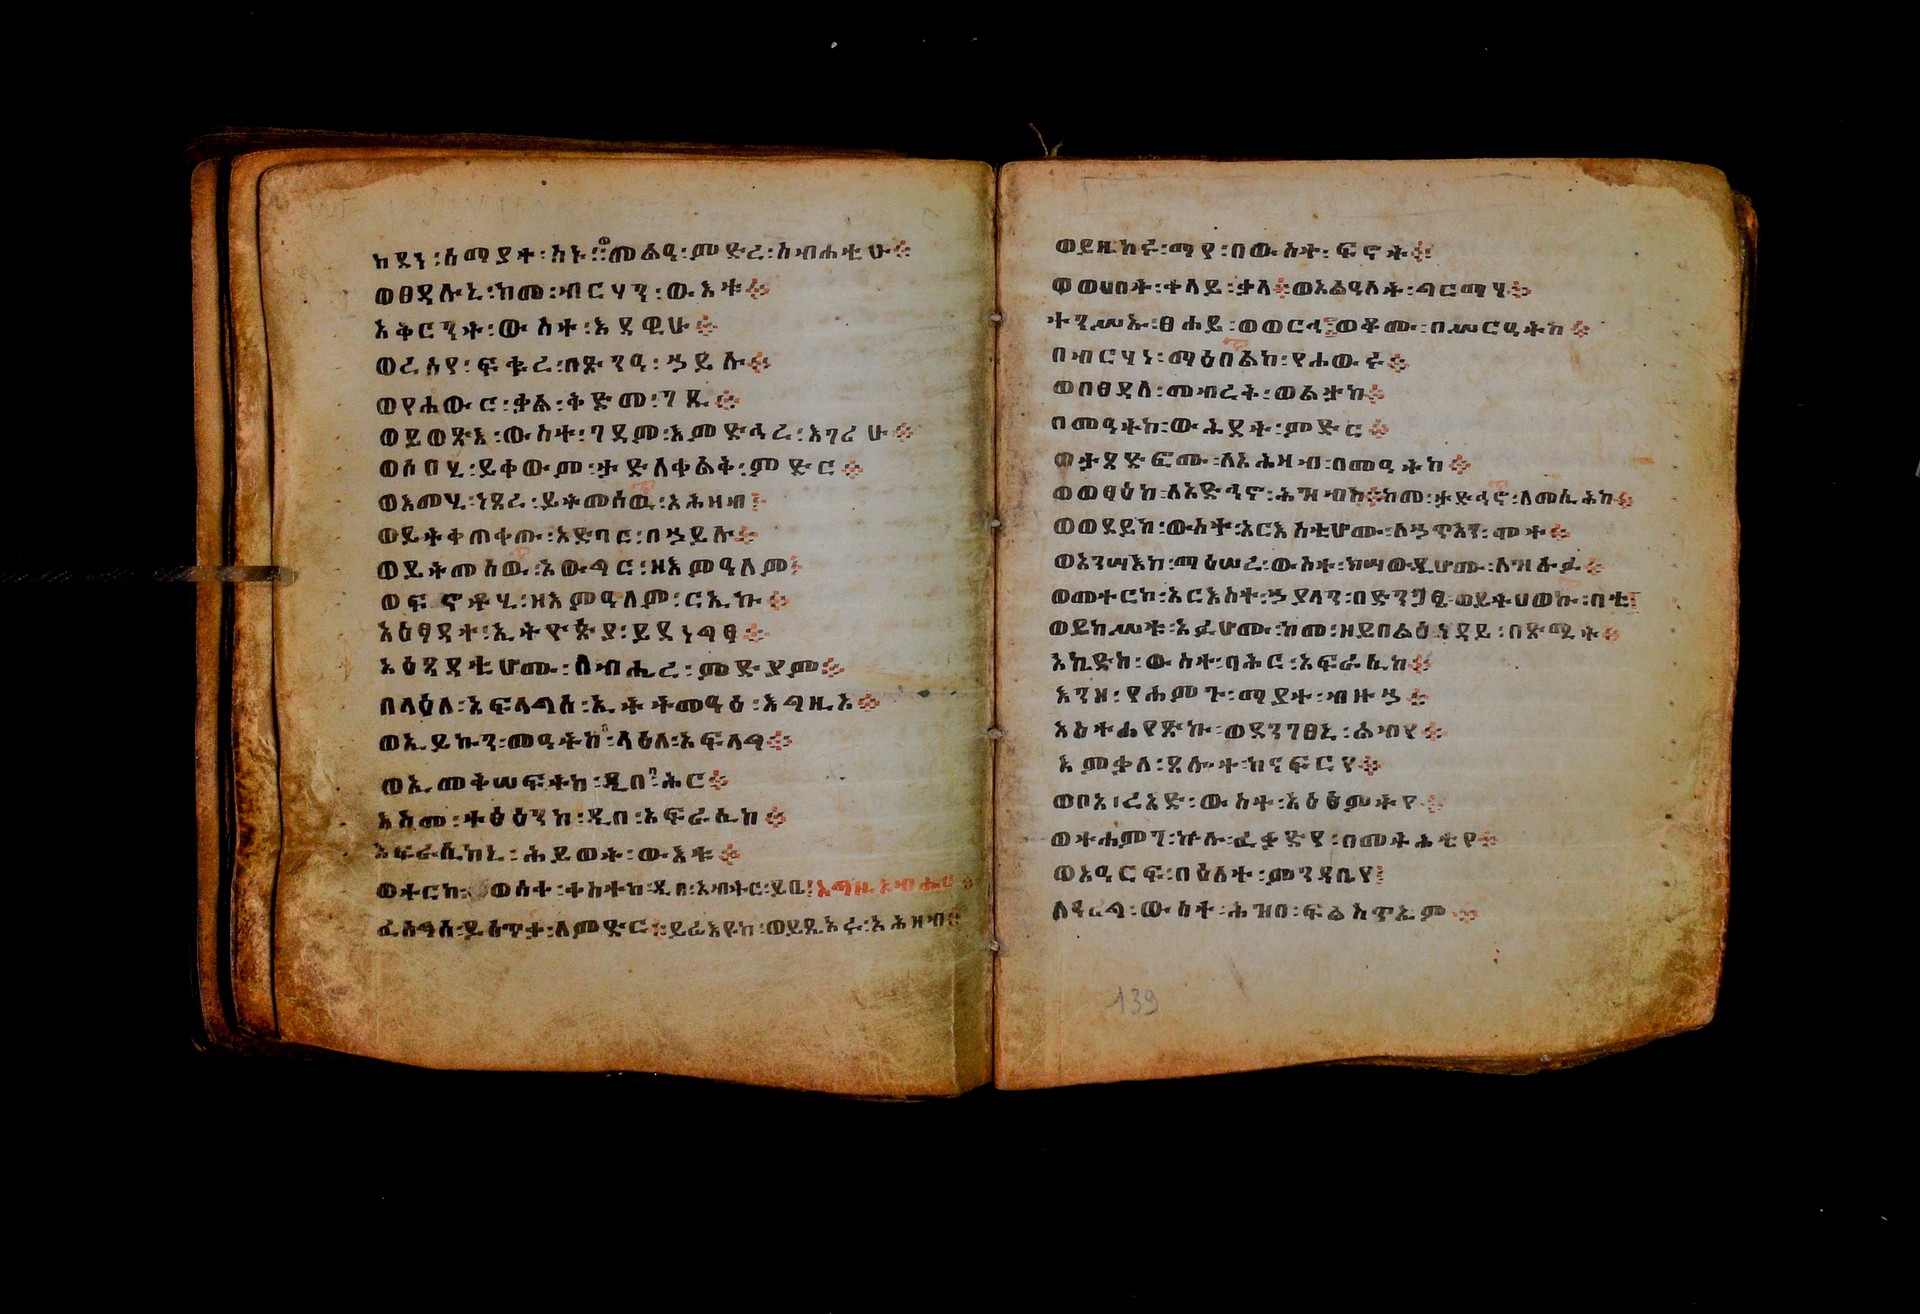 ከደነ፡ሰማያተ፡አኑ፡መልዒ፡ምድረ፡ስብሐቲሁ።
ወፀዳሉኒ፡ከመ፡ብርሃን፡ውእቱ።
አቅርንት፡ውስተ፡እደዊሁ።
ወረሰየ፡ፍቁረ፡በጽንዓ፡ኃይሉ።
ወየሐውር፡ቃል፡ቅድመ፡ገጹ።
ወይወጽእ፡ውስተ፡ገዳም፡እምድኅረ፡እገሪሁ።
ወሶበሂ፡ይቀውም፡ታድለቀልቅ፡ምድር።
ወእመሂ፡ነጸረ፡ይትመሰዉ፡አሕዛብ።
ወይትቀጠቀጡ፡አድባር፡በኃይሉ።
ወይትመሰዉ፡አውግር፡ዘእምዓለም።
ወፍኖቶሂ፡ዘእምዓለም፡ርኢኩ።
አፅፃደተ፡ኢትዮጵያ፡ይደነግፃ።
አፅፃዳቲሆሙ፡ለብሔረ፡ምድያም።
በላዕለ፡አፍላግሰ፡ኢትትመዓዕ፡እግዚኦ።
ወኢይኩን፡መዓትከ፡ላዕለ፡አፍላግ።
ወኢመቅሠፍትከ፡ዲበ፡ባሕር።
እስመ፡ትፅዕንከ፡ዲበ፡አፍራሲከ።
አፍራሲከኒ፡ሕይወት፡ውእቱ።
ወትርከ፡ወሰተ፡ቀስተከ፡ዲበ፡አብትር፡ይቤ፡እግዚአብሔር።
ፈለግሰ፡ይሰጥቃ፡ለምድር።ይሬእዩከ፡ወይጼአሩ፡አሕዛብ።
ወይዘከሩ፡ማየ፡በውስተ፡ፍኖት።
ወወሀበት፡ቀላይ፡ቃለ።ወአልዓለት፡ግርማሃ።
ተንሥአ፡ፀሐይ፡ወወርኅ።ወቆሙ፡በሥርዓትከ።
በብርሃነ፡ማዕበልከ፡የሐውሩ።
ወበፀዳለ፡መብረቅ፡ወልታከ።
በመዓትከ፡ውሕደት፡ምድር።
ወታጸድፎሙ፡ለአሕዛብ፡በመዓትከ።
ወወፃእከ፡ለአድኅኖ፡ሕዝብከ።ከመ፡ታድኅኖ፡ለመሲሕከ።
ወወደይከ፡ውስተ፡አርእስቲሆሙ፡ለኃጥአን፡ሞተ።
ወአንሣእከ፡ማዕሠረ፡ውስተ፡ክሣውዲሆሙ፡ለዝሉፉ።
ወመተርከ፡አርእስተ፡ኃያላን፡በድንጋፄ፡ወይትሀወኩ፡በቲ።
ወይከሥቱ፡አፈሆሙ፡ከመ፡ዘይበልዕ፡ነዳይ፡በጽሚት።
አኪድከ፡ውስተ፡ባሕር፡አፍራሲከ።
እንዘ፡የሐምጉ፡ማያተ፡ብዙኃ።
አስተሐየጽኩ፡ወደንገፀኒ፡ልብየ።
እምቃለ፡ጸሎተ፡ከናፍርየ።
ወቦአ፡ረዓድ፡ውስተ፡አዕፅምትየ።
ወተሐምገ፡ኵሉ፡ፈቃድየ፡በመትሕቴየ።
ወአዓርፍ፡በዕለተ፡ምንዳቤየ።
ለዓሪግ፡ውስተ፡ሕዝበ፡ፍልሰጥኤም።
139